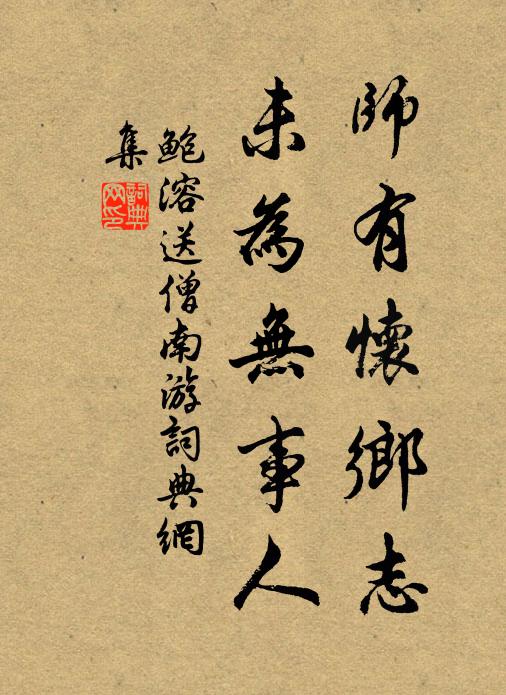 師有懷鄉志
未為無事人
鮑溶送僧南游詞典網
集
詞典
网印